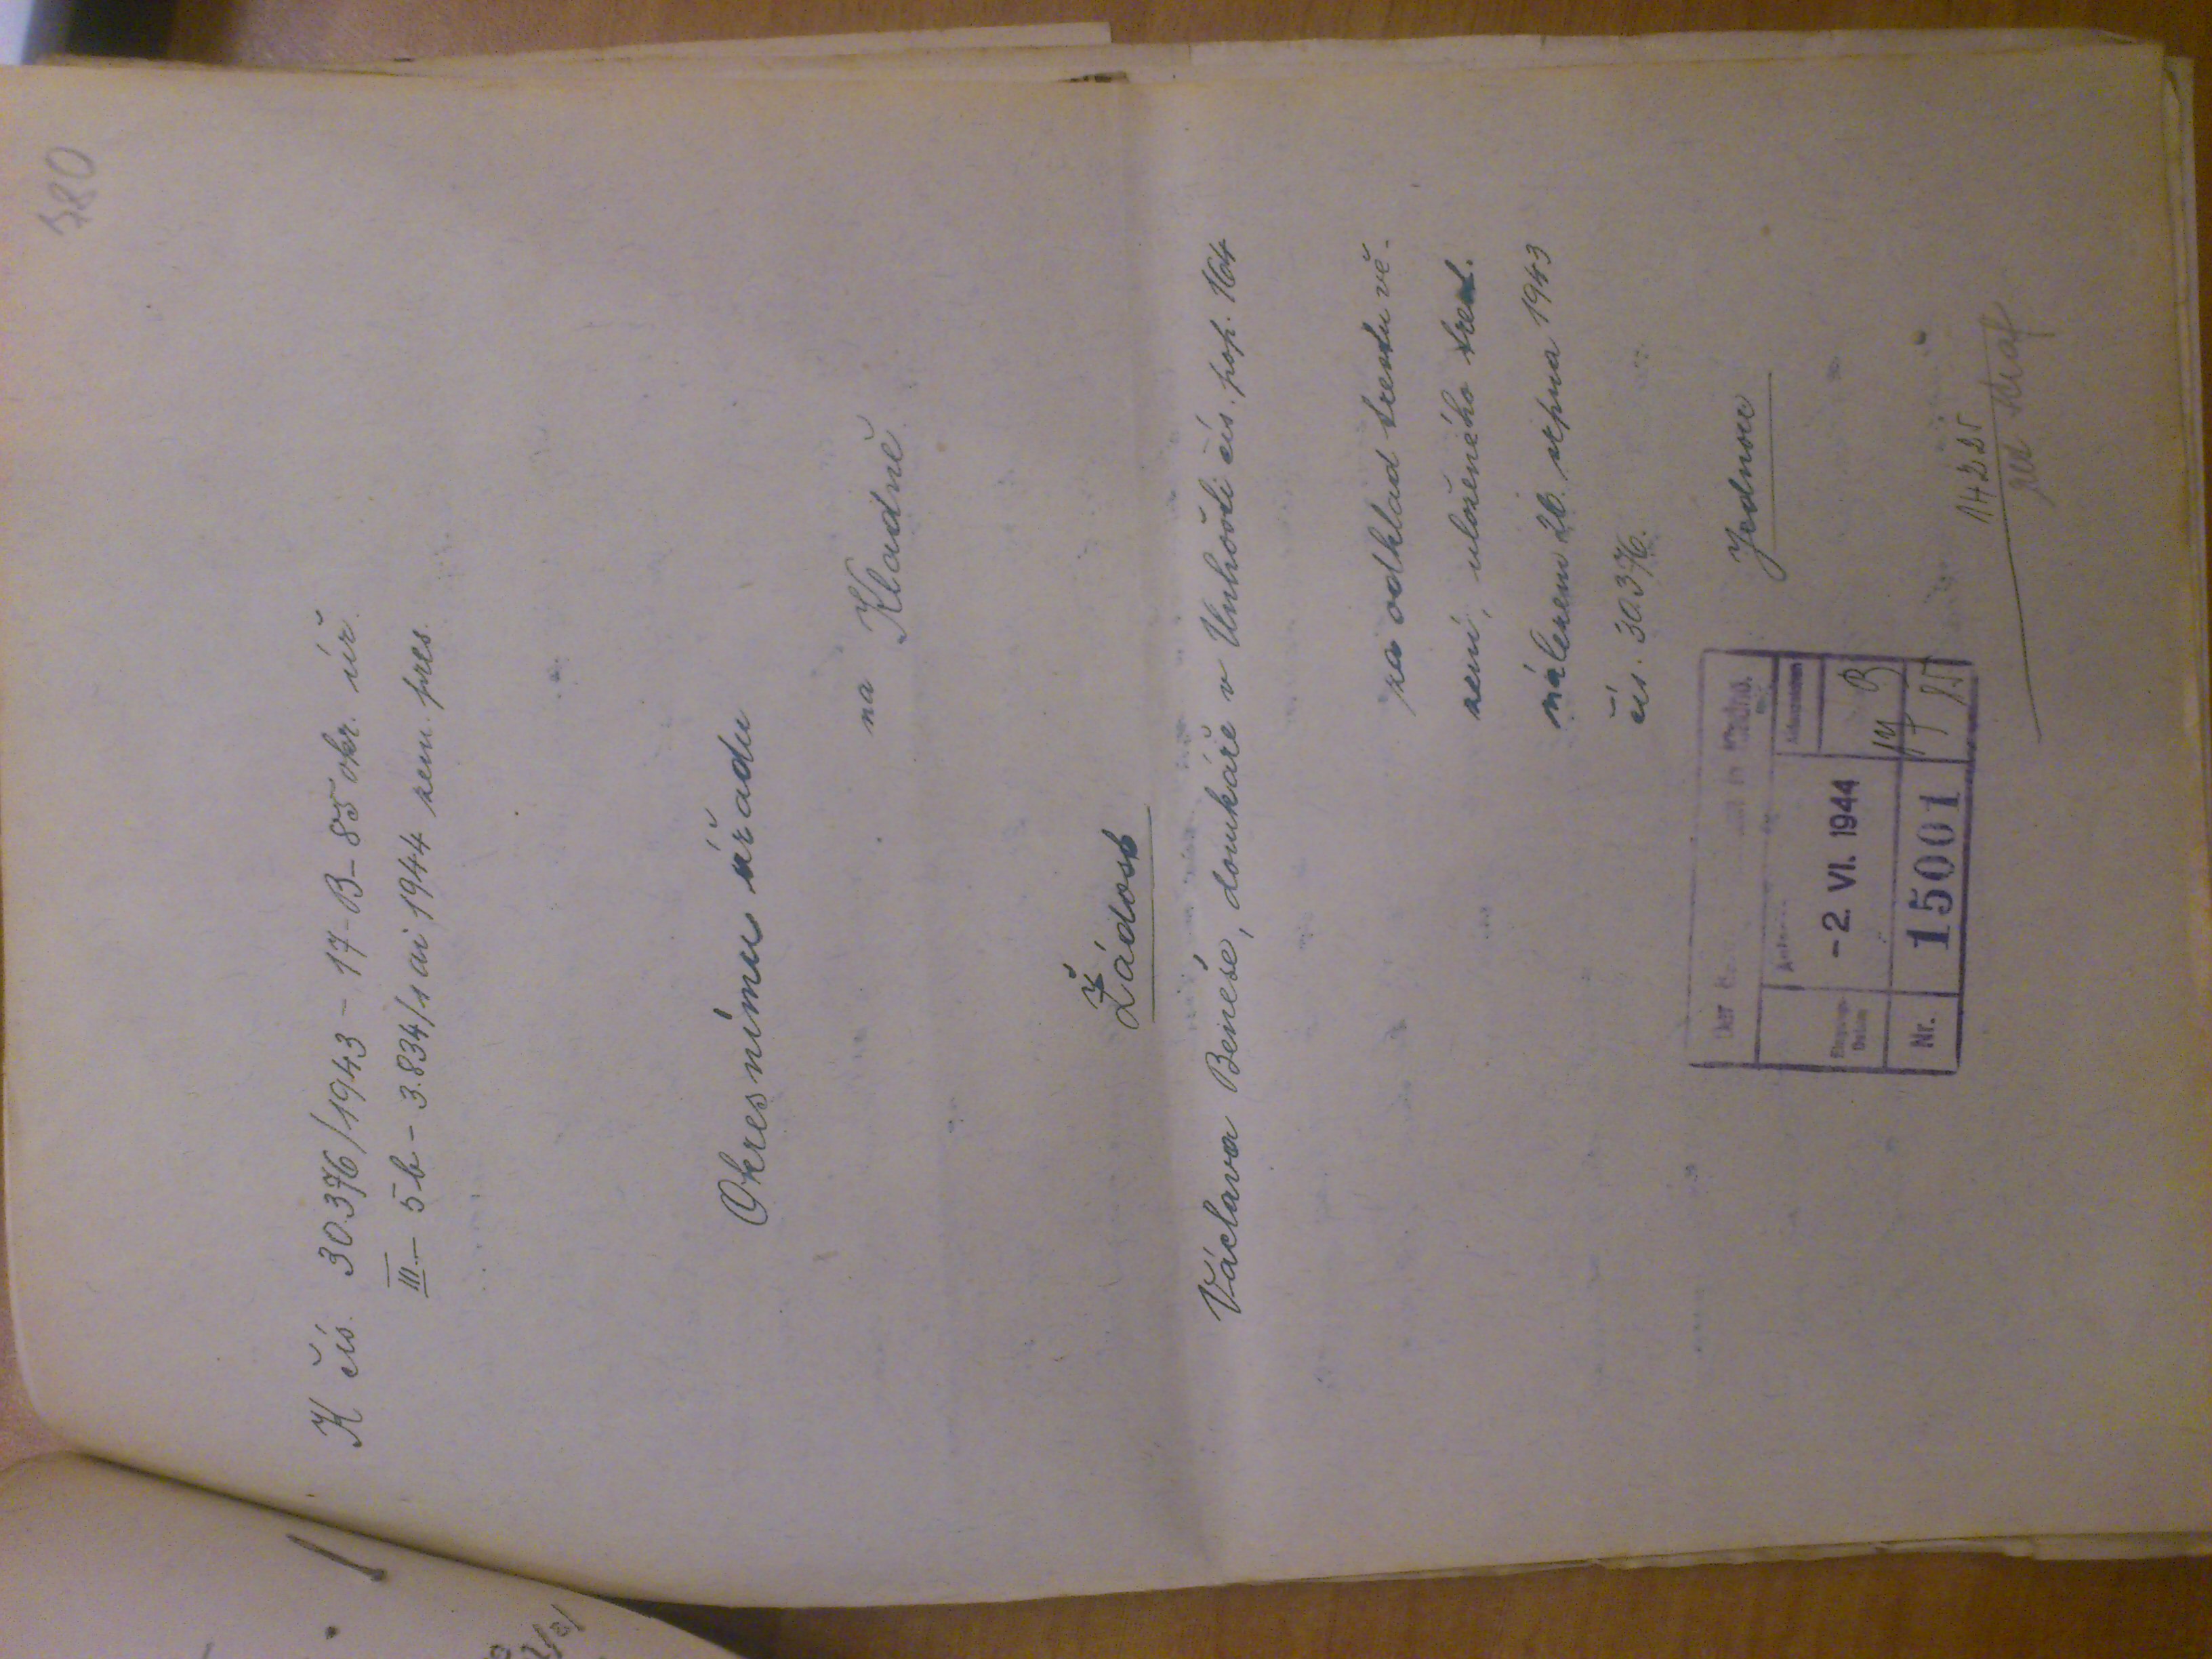 780
K čís. 30.376/1943 - 17-B-85 okr. úř.
III.- 5b - 3.834/1 ai 1944 zem. pres.
Okresnímu úřadu
na Kladně
Žádost
Václava Beneše, domkáře v Unhošti čís. pop. 164
za odklad trestu vě-
zení, uloženého trest.
nálezem 26. srpna 1943
čís. 30.376.
Jednou
Der in Kladno.
Aktenzeichen
Eingangs-
Datum
-2. VI. 1944
17 B
Nr. 15001 85
14225